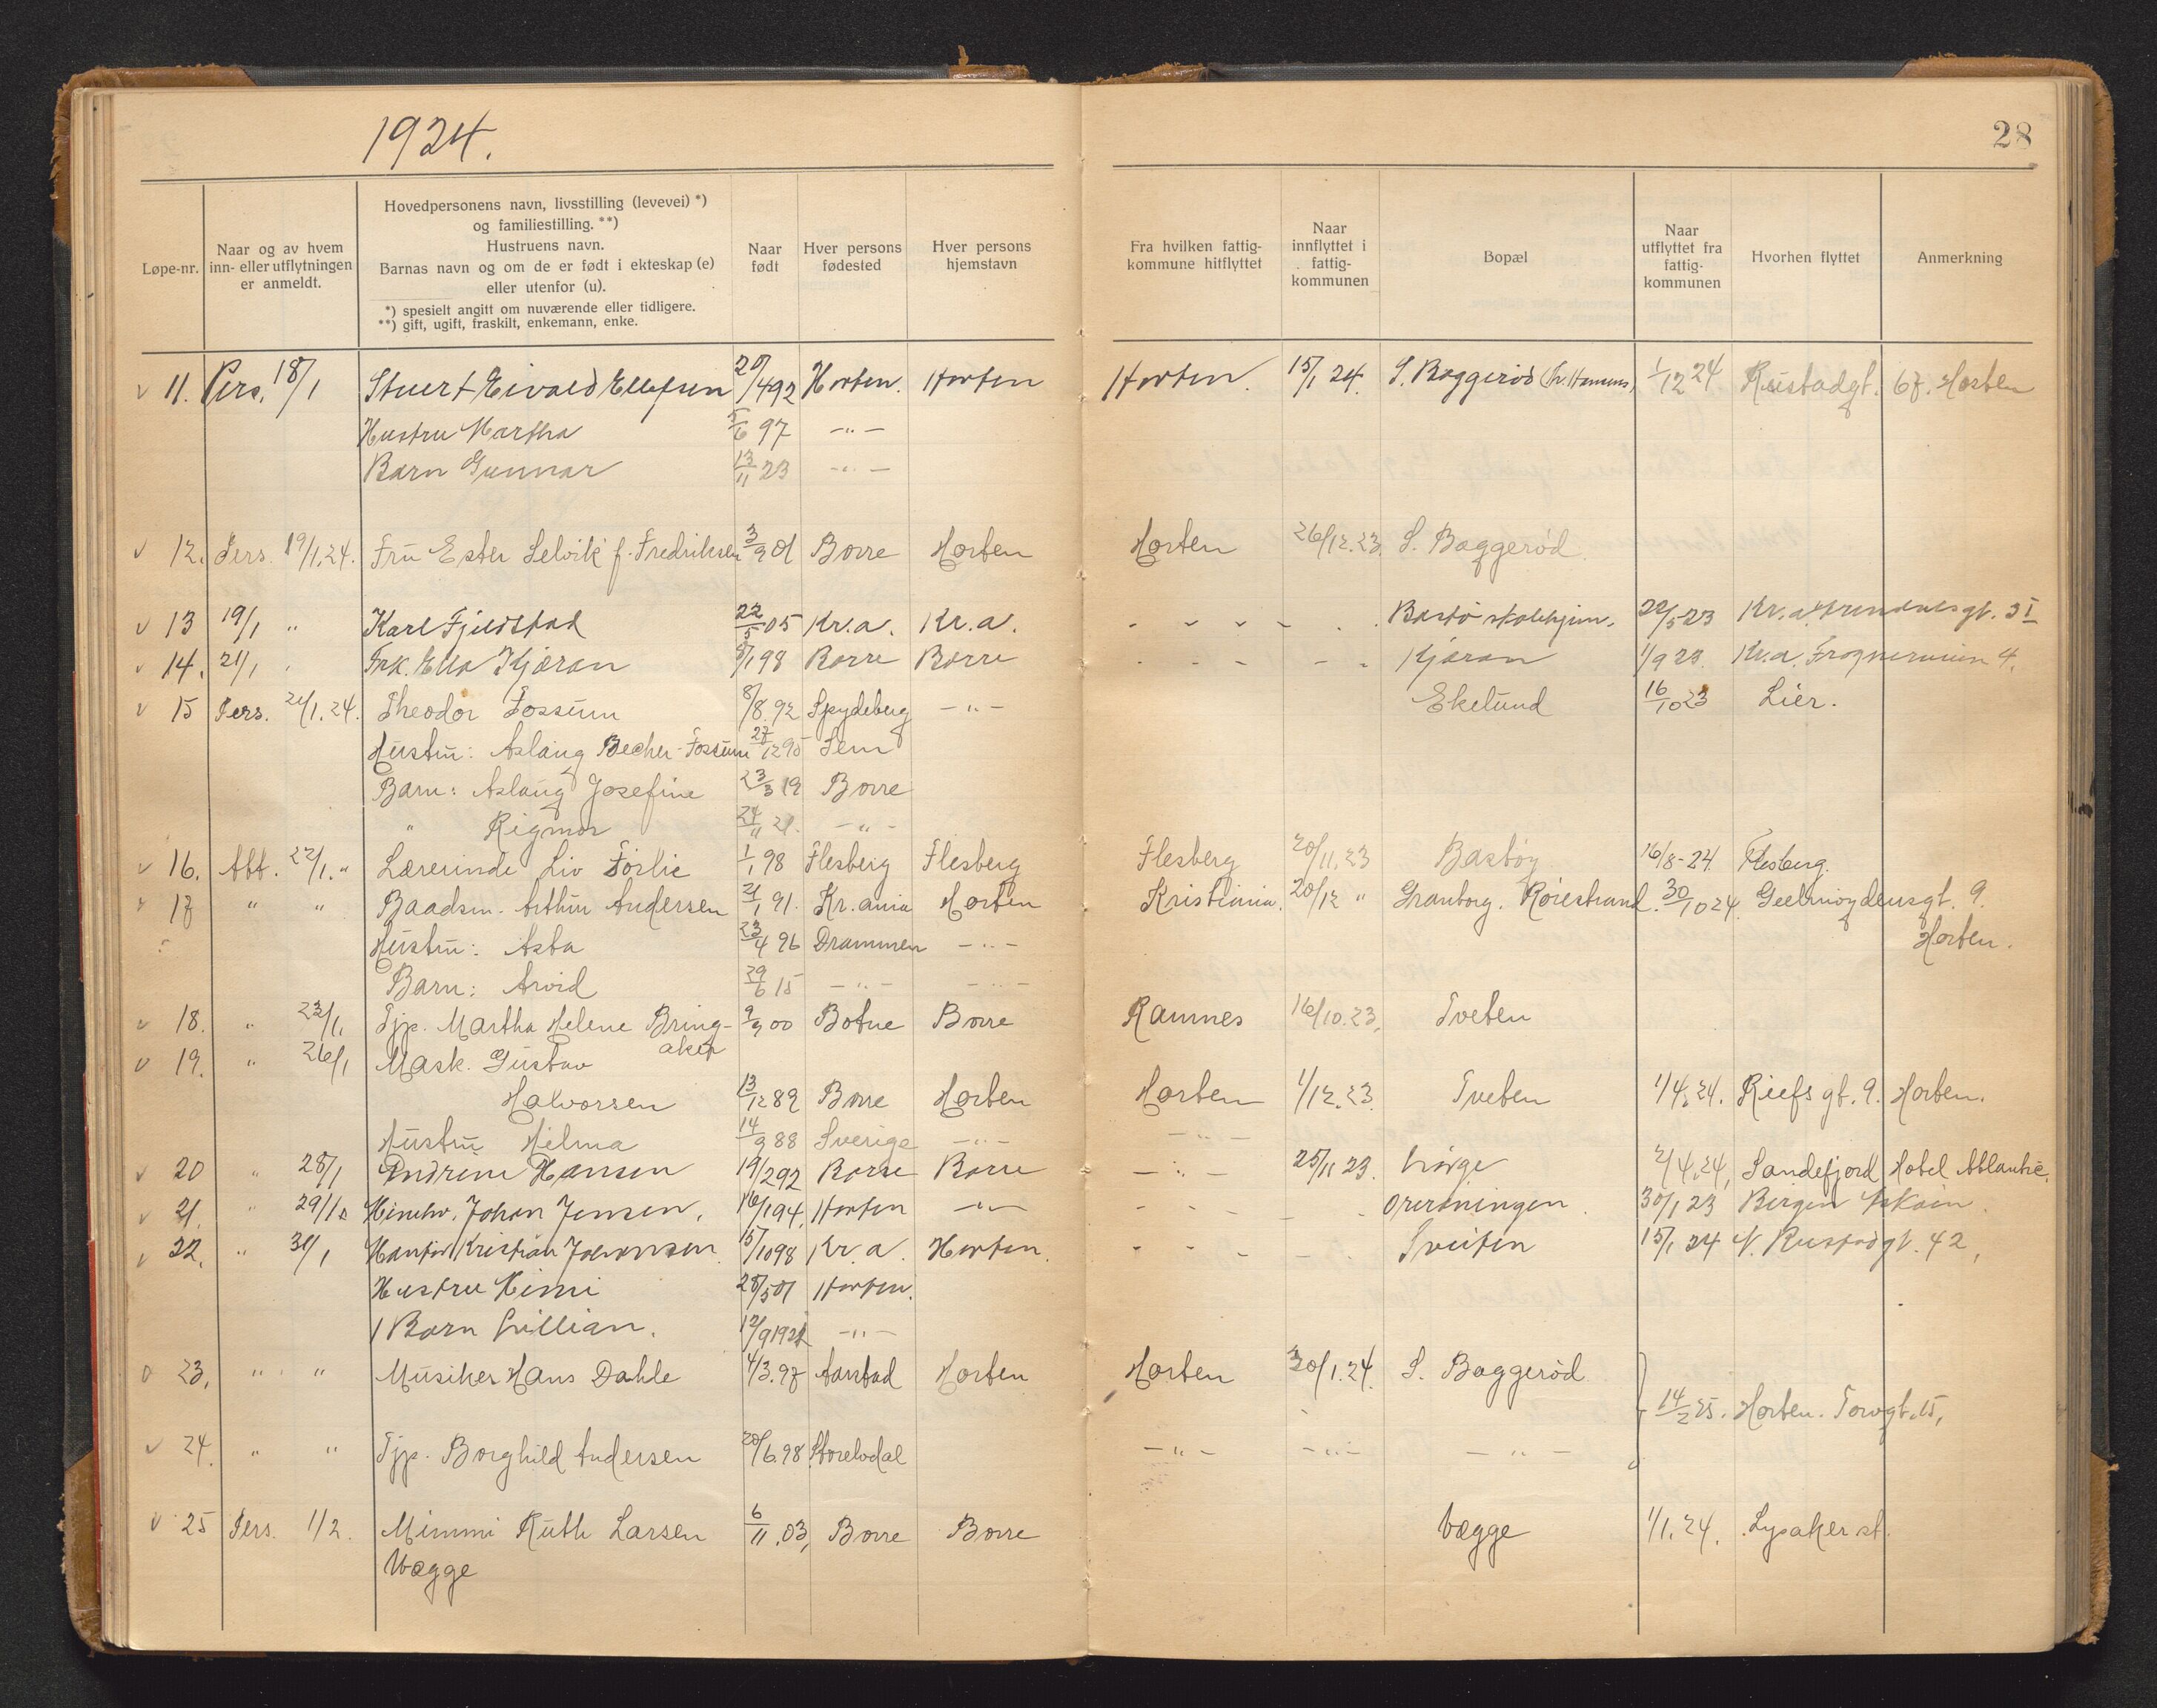 1924.
28
Løpe-nr.
Naar og av hvem inn- eller utflytningen er anmeldt.
Hovedpersonens navn, livsstilling (levevei) *) og familiestilling. **)
Hustruens navn.
Barnas navn og om de er født i ekteskap (e) eller utenfor (u).
*) spesielt angitt om nuværende eller tidligere.
**) gift, ugift, fraskilt, enkemann, enke.
Naar født
Hver persons fødested
Hver persons hjemstavn
Fra hvilken fattig-kommune hitflyttet
Naar innflyttet i fattig-kommunen
Bopæl
Naar utflyttet fra fattig-kommunen
Hvorhen flyttet
Anmerkning
v 11. Pers. 18/1 Stuert Eivald Ellefsen 20/4 92 Horten. Horten Horten. 15/1 24. S. Baggerød 1/12 24 Rustadgt. 67. Horten
Hustru Martha 5/6 97 -"-
Barn Gunnar 13/11 23 -"-
v 12. Pers. 19/1.24. Fru Ester Selvik f. Fredriksen 3/9 01 Borre Horten Horten 26/12.23. S. Baggerød
v 13 19/1 " Karl Fjeldstad 22/5 05 Kr.a. Kr.a. Bastø skolehjem. 22/5 23 Kr.a. 3 I
v 14. 21/1 Frk. Ella Kjæran 8/1 98 Borre Borre Kjæran 1/9 23. Kr.a. Frognerveien 4.
v 15 Pers. 21/1.24. Theodor Fossum 8/8.92 Spydeberg -"- Ekelund 16/10 23 Lier.
Hustru: Aslaug Becher-Fossum 27/12 95 Sem
Barn: Aslaug Josefine 23/3 19 Borre
" Rigmor 24/11 21. -"-
v 16. Att. 22/1. " Lærerinde Liv Førlie 1/1 98 Flesberg Flesberg Flesberg 20/11.23 Bastøy 16/8-24 Flesberg.
v 17 " " Baadsm. Arthur Andersen 2/1 91. Kr.ania Horten Kristiania. 20/12 " Granborg. Rørestrand. 30/10 24. Geelmuydensgt. 9.
Hustru: Asta 23/4 96 Drammen -"- Horten.
Barn: Arvid 29/6 15 -"- -"-
v 18. " 23/1. Tjp. Martha Helene Bring- 9/9 00 Botne Borre Ramnes 16/10.23. Tveten
aker
v 19. " 26/1 Mask. Gustav
Halvorsen 13/12 89 Borre Horten Horten 1/12.23. Tveten 1/4.24. Riefs gt. 9. Horten.
Hustru Hilma 14/9 88 Sverige -"- -"-
v 20 " 28/1 Andrine Hansen 19/2 92 Borre Borre -"- 25/11 23. Lørge 2/4.24, Sandefjord Hotel Atlantic.
v 21. " 29/1 Johan Jensen. 16/1 94. Horten -"- 30/1 23 Bergen
v 22. " 31/1 Kristian Johannsen 15/10 98 Kr.a. Horten. 15/1 24 42,
Hustru Mimi 28/5 01 Horten.
1 Barn Lillian. 12/9 1921 -"-
v 23. " " Musiker Hans Dahle 4/3.97 Aarstad Horten Horten 30/1.24. S. Baggerød
14/2 25. Horten. Torvgt. 15,
v 24. " " Tjp. Borghild Andersen 20/6.98 Storelvdal -"- -"- -"-
v 25 Pers. 1/2. Mimmi Ruth Larsen 6/11.03, Borre Borre Vægge 1/1.24. Lysaker st.
Vægge